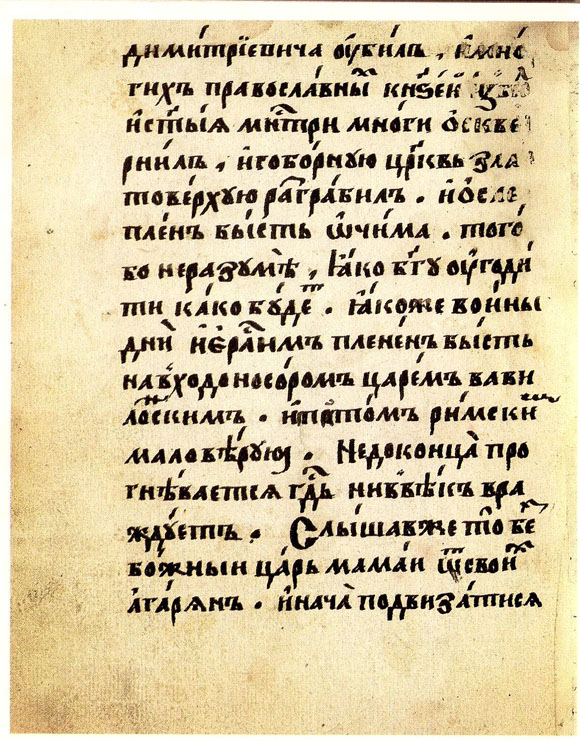 димитрїевича оубилъ , и мно
гихъ православны кнѕеи изби
и ст҃ыѧ мнтри многи ѡскве
рнилъ , и соборную цр҃квь зла
товерхую разграбилъ . и ѡсле
пленъ бысть ѡчима . того
бо не разумѣ , ꙗко бг҃у оугоди
ти како буде т . ꙗкоже во ины
дни иерл҃имъ пленен бысть
навходоносором царем вави
лоскимъ . и титомъ римски
маловѣрую . Не до конца про
гнѣваетсѧ гд҃ь ни в вѣкъ вра
ждуетъ . Слышавже то бе
божныи царь мамаи ѿ свои
агарѧнъ . и нача подвизатисѧ